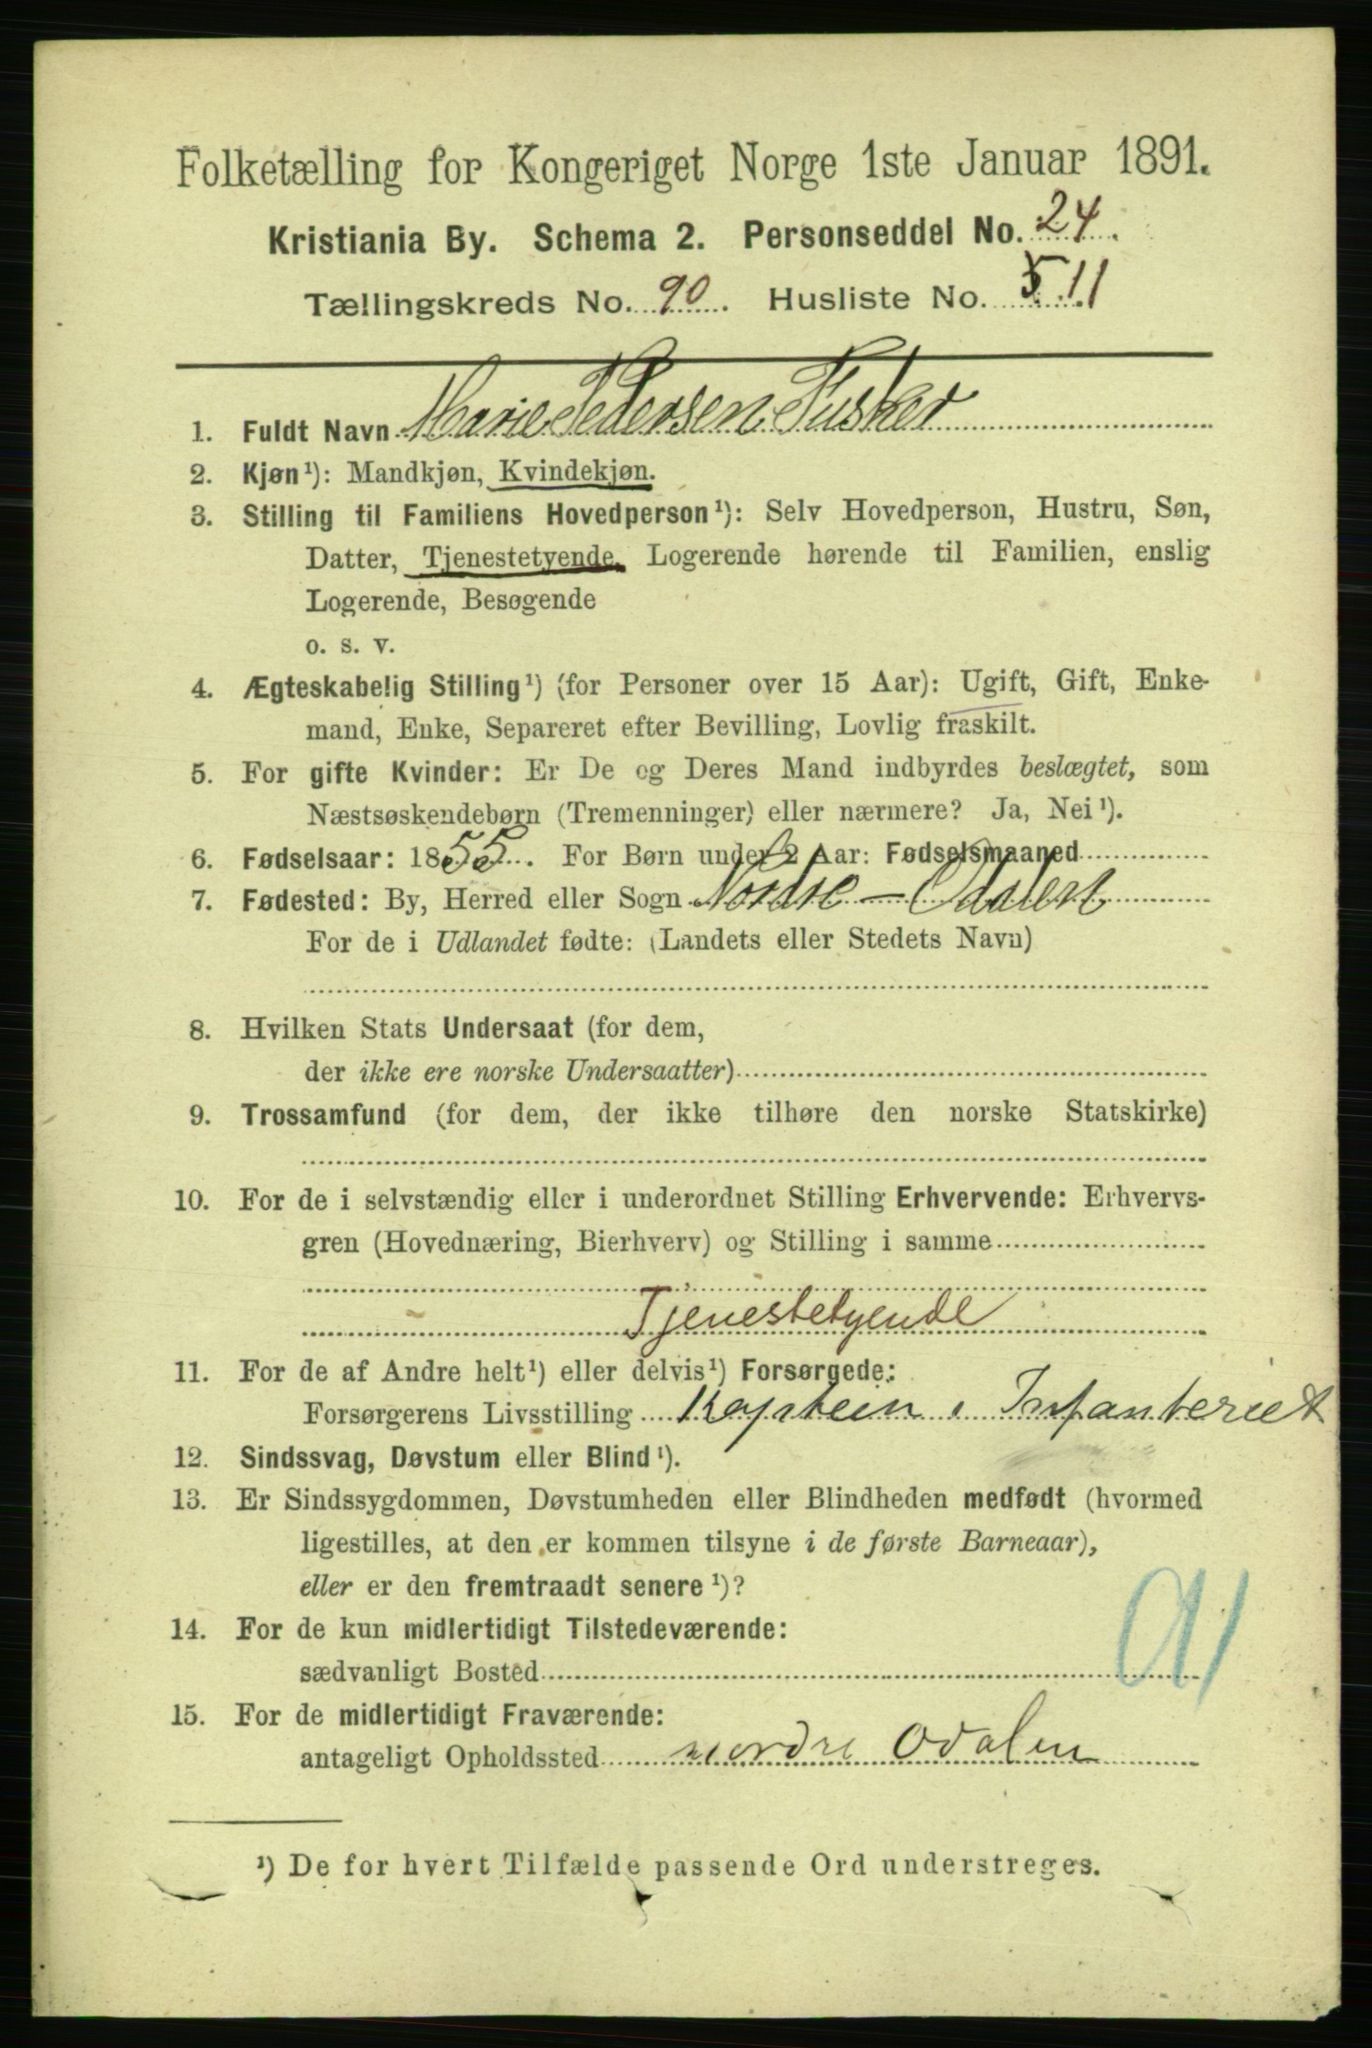 Folketælling for Kongeriget Norge 1ste Januar 1891.
Kristiania By. Schema 2. Personseddel No. 24.
Tællingskreds No. 90. Husliste No. 5 11
1. Fuldt Navn Marie Pedersen Fusker
2. Kjøn¹): Mandkjøn, Kvindekjøn.
3. Stilling til Familiens Hovedperson¹): Selv Hovedperson, Hustru, Søn,
Datter, Tjenestetyende, Logerende hørende til Familien, enslig
Logerende, Besøgende
o. s. v.
4. Ægteskabelig Stilling¹) (for Personer over 15 Aar): Ugift, Gift, Enke-
mand, Enke, Separeret efter Bevilling, Lovlig fraskilt.
5. For gifte Kvinder: Er De og Deres Mand indbyrdes beslægtet, som
Næstsøskendebørn (Tremenninger) eller nærmere? Ja, Nei¹).
6. Fødselsaar: 1855. For Børn under 2 Aar: Fødselsmaaned
7. Fødested: By, Herred eller Sogn Nordre - Odalen
For de i Udlandet fødte: (Landets eller Stedets Navn)
8. Hvilken Stats Undersaat (for dem,
der ikke ere norske Undersaatter)
9. Trossamfund (for dem, der ikke tilhøre den norske Statskirke)
10. For de i selvstændig eller i underordnet Stilling Erhvervende: Erhvervs-
gren (Hovednæring, Bierhverv) og Stilling i samme
Tjenestetyende
11. For de af Andre helt¹) eller delvis¹) Forsørgede:
Forsørgerens Livsstilling Kaptein i Infanteriet
12. Sindssvag, Døvstum eller Blind¹).
13. Er Sindssygdommen, Døvstumheden eller Blindheden medfødt (hvormed
ligestilles, at den er kommen tilsyne i de første Barneaar),
eller er den fremtraadt senere¹)?
14. For de kun midlertidigt Tilstedeværende:
sædvanligt Bosted
91
15. For de midlertidigt Fraværende:
antageligt Opholdssted nordre Odalen
¹) De for hvert Tilfælde passende Ord understreges.